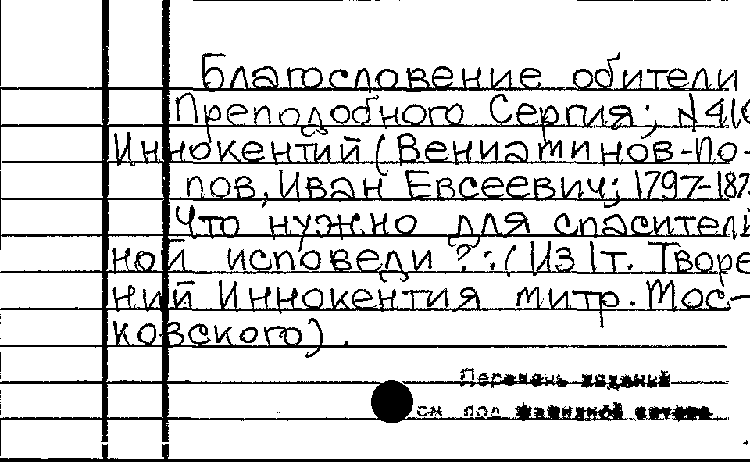 Благословение обители
Преподобного Сергия; №41
Иннокентий (Вениаминов-По-
пов, Иван Евсеевич; 1797-187
Что нужно для спаситель
ной исповеди?: (Из 1т. Творе
ний Иннокентия митр. Мос-
ковского).
Перечень изданий
см под